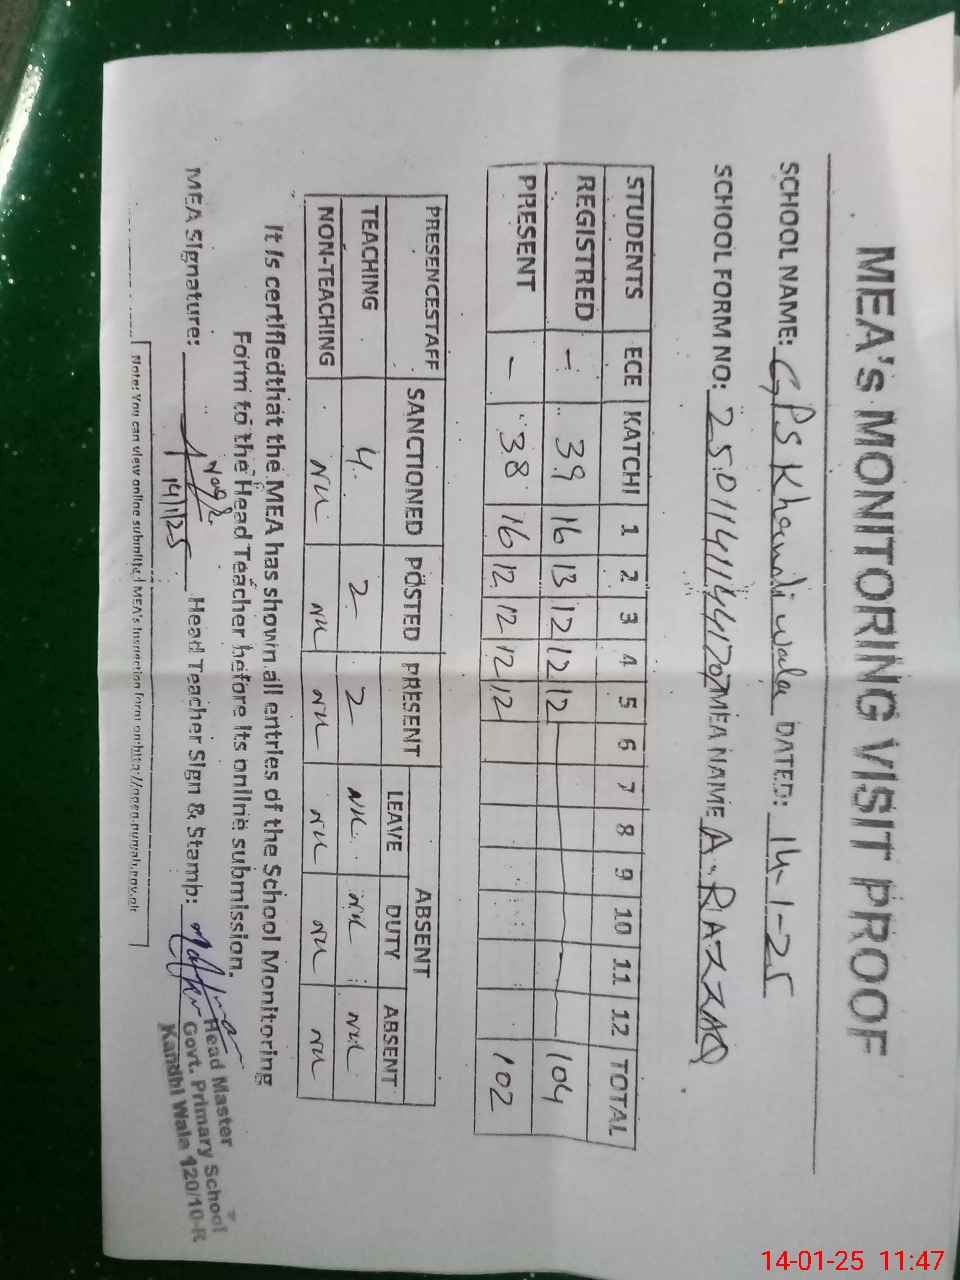 MEA's MONITORING VISIT PROOF
SCHOOL NAME: GPS Khamdiwala DATED: 14-1-25
SCHOOL FORM NO: MEA NAME A. RAZZAQ
STUDENTS ECE KATCHI 1 2 3 4 5 6 7 8 9 10 11 12 TOTAL
REGISTRED - 39 16 13 12 12 12 104
PRESENT - 38 16 12 12 12 12 102
PRESENCESTAFF SANCTIONED POSTED PRESENT ABSENT
LEAVE DUTY ABSENT
TEACHING 4 2 2 NIL NIL NIL
NON-TEACHING NIL NIL NIL NIL NIL NIL
It is certifiedthat the MEA has shown all entries of the School Monitoring
Form to the Head Teacher before its online submission.
MEA Signature: 14/1/25 Head Teacher Sign & Stamp:
Head Master
Govt. Primary School
Kandhi Wala 120/10-R
Note: You can view online submitted MEA's Inspection form on:
14-01-25 11:47